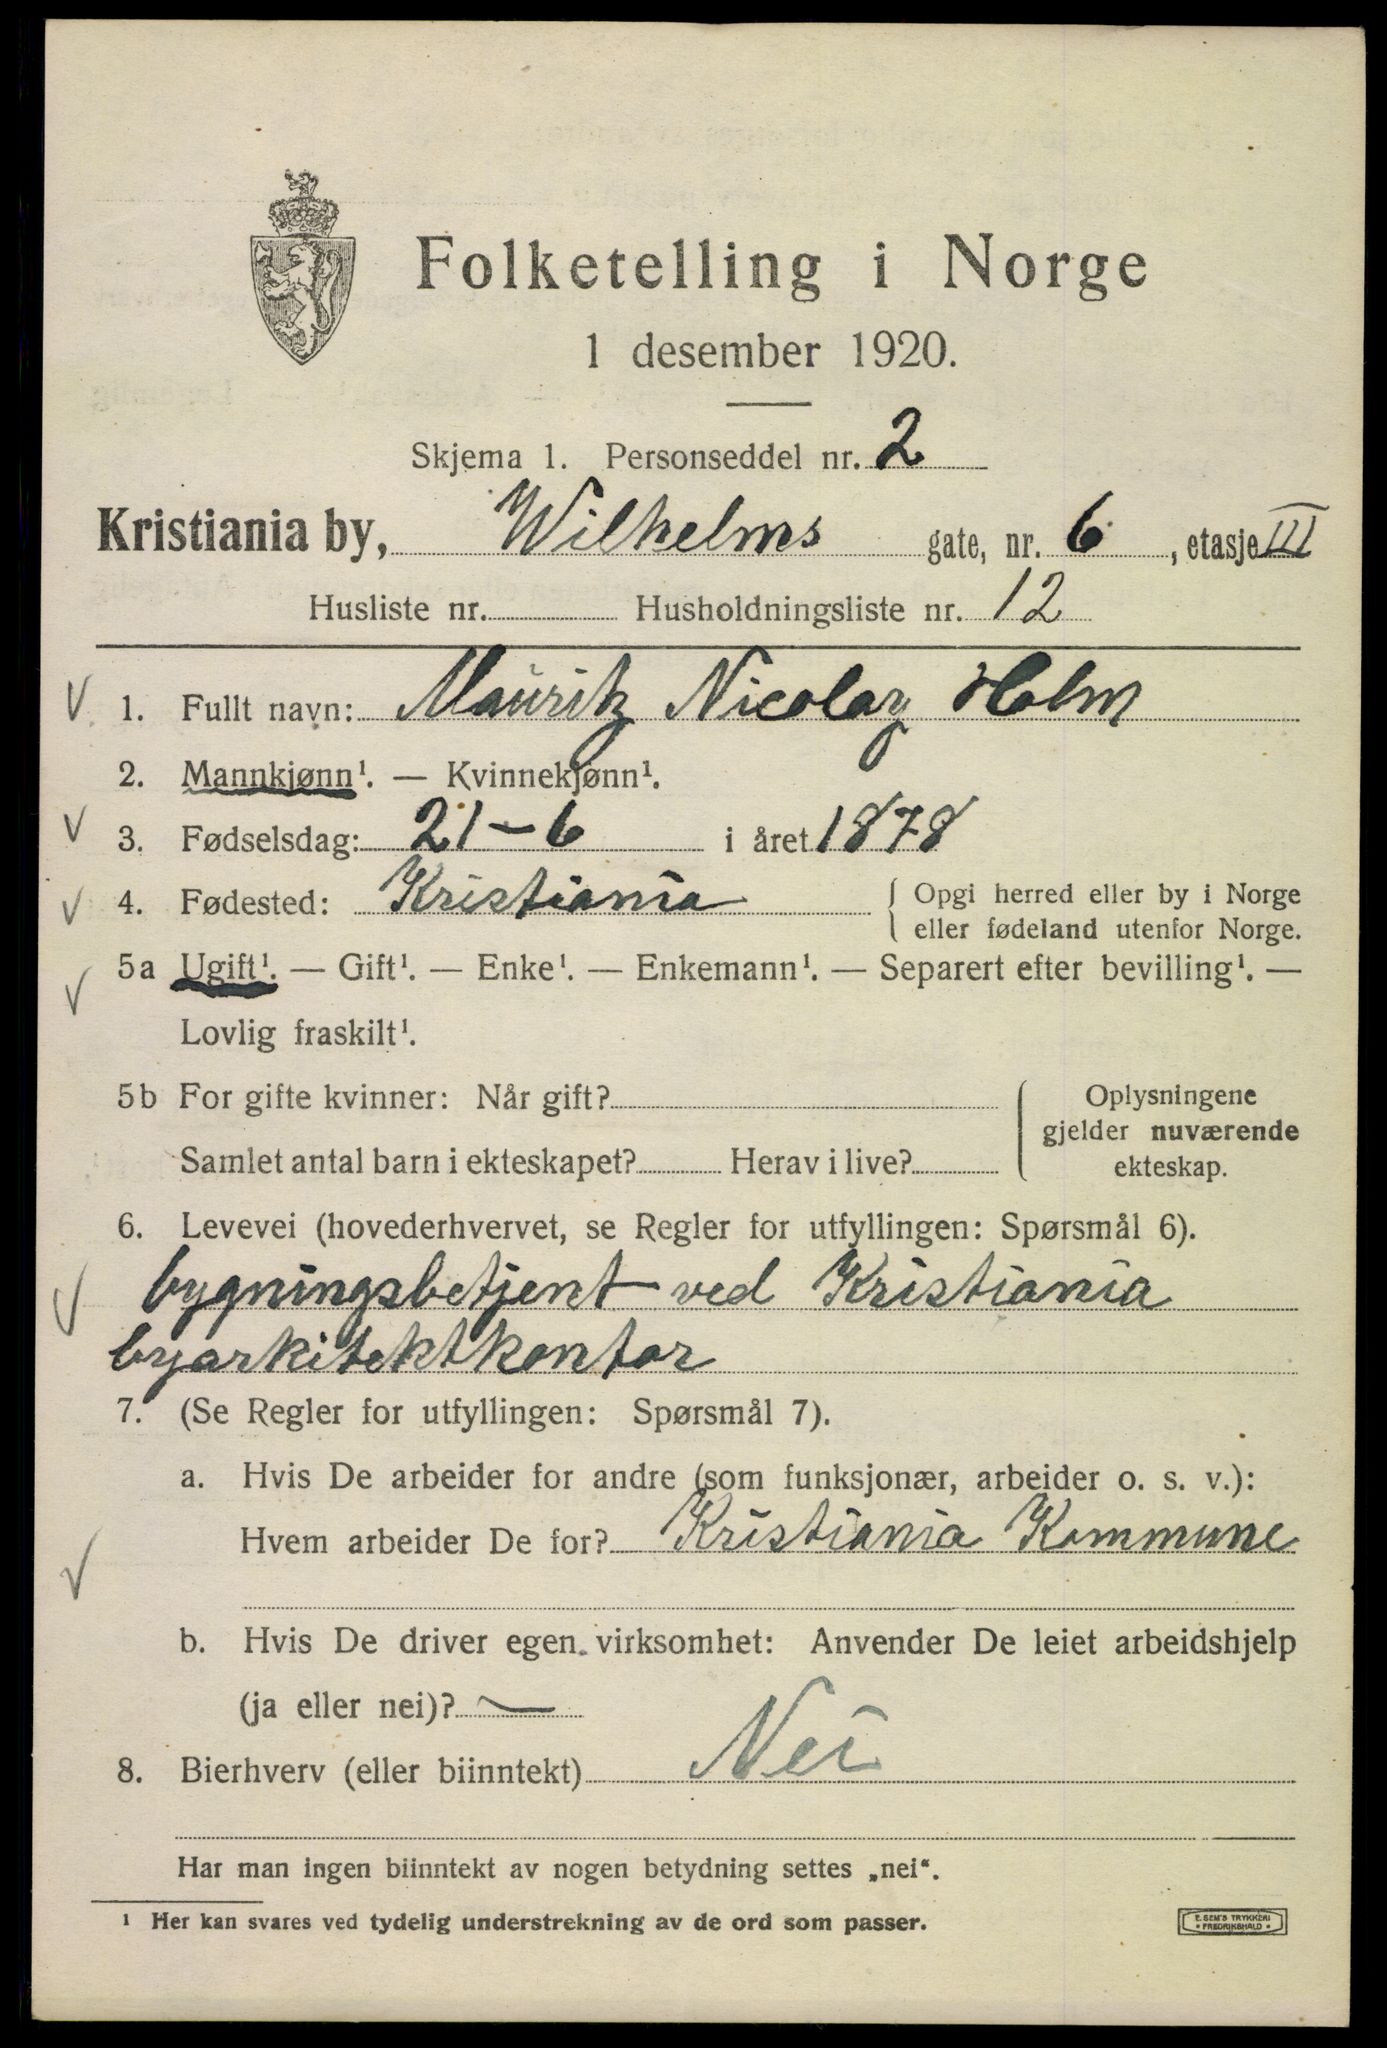 Folketelling i Norge
1 desember 1920.
Skjema 1. Personseddel nr. 2
Kristiania by, Wilhelms gate, nr. 6, etasje III
Husliste nr. Husholdningsliste nr. 12
1. Fullt navn: Mauritz Nicolay Holm
2. Mannkjønn¹. — Kvinnekjønn¹.
3. Fødselsdag: 21-6 i året 1878
4. Fødested: Kristiania { Opgi herred eller by i Norge
eller fødeland utenfor Norge.
5a Ugift¹. — Gift¹. — Enke¹. — Enkemann¹. — Separert efter bevilling¹. —
Lovlig fraskilt¹.
5b For gifte kvinner: Når gift? { Oplysningene
gjelder nuværende
Samlet antal barn i ekteskapet? Herav i live? ekteskap.
6. Levevei (hovederhvervet, se Regler for utfyllingen: Spørsmål 6).
bygningsbetjent ved Kristiania
byarkitektkontor
7. (Se Regler for utfyllingen: Spørsmål 7).
a. Hvis De arbeider for andre (som funksjonær, arbeider o. s. v.):
Hvem arbeider De for? Kristiania Kommune
b. Hvis De driver egen virksomhet: Anvender De leiet arbeidshjelp
(ja eller nei)? —
8. Bierhverv (eller biinntekt) Nei
Har man ingen biinntekt av nogen betydning settes „nei“.
¹ Her kan svares ved tydelig understrekning av de ord som passer.
E. SEM'S TRYKKERI
• FREDRIKSHALD •